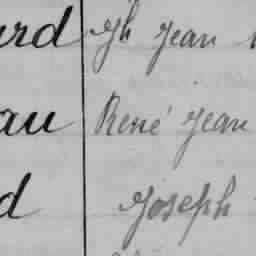 urd Jh Jean
au René Jean
d Joseph